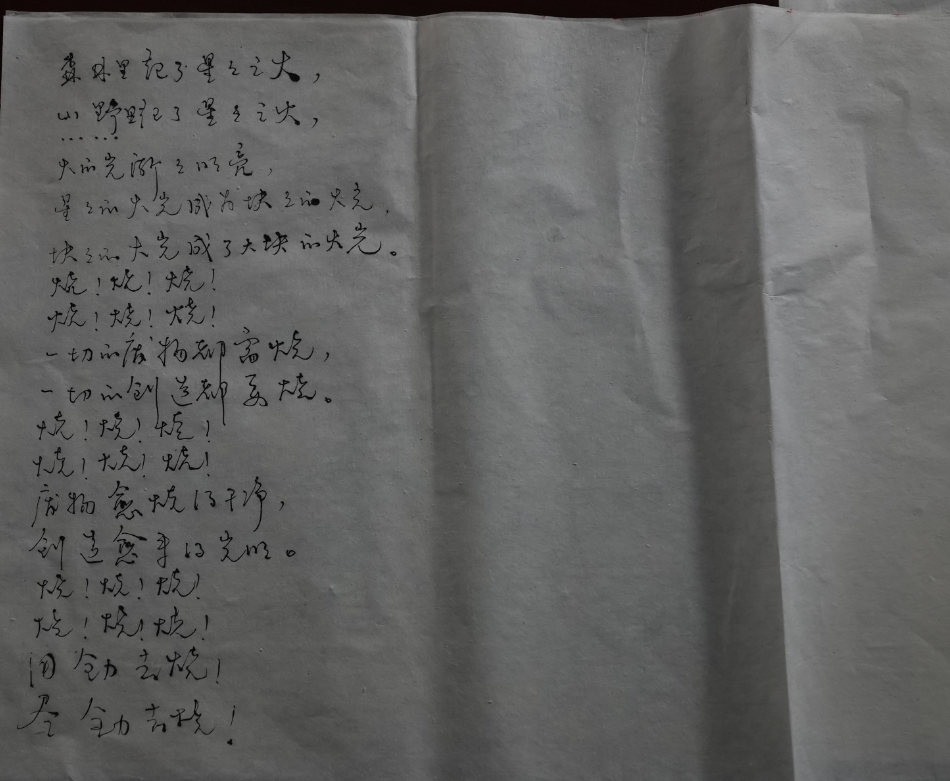 森林里起了星々之火，
山野里起了星々之火，
……
火的光渐々的明亮，
星々的火光成为块々的火光，
块々的火光成了大块的火光。
烧！烧！烧！
烧！烧！烧！
一切的废物都需烧，
一切的创造都要烧。
烧！烧！烧！
烧！烧！烧！
废物愈烧得干净，
创造愈来得光明。
烧！烧！烧！
烧！烧！烧！
用全力去烧！
尽全力去烧！